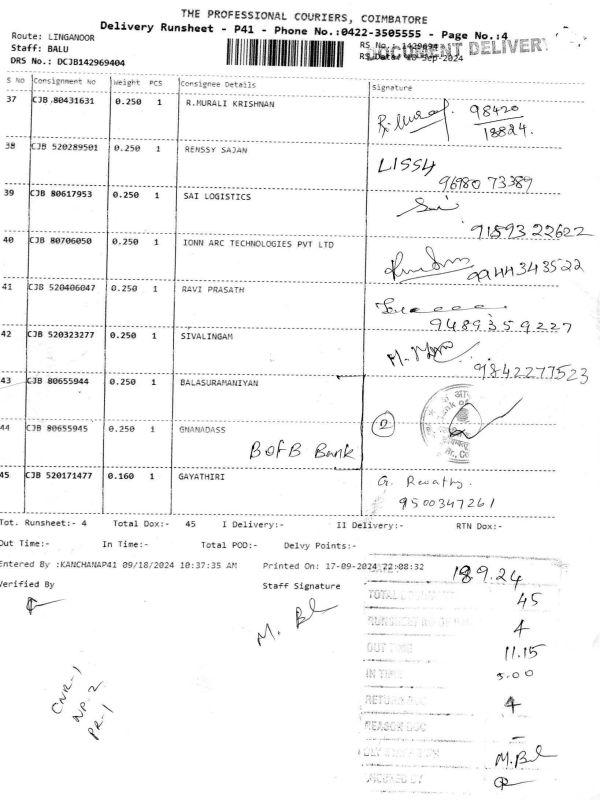 THE PROFESSIONAL COURIERS, COIMBATORE
Delivery Runsheet - P41 - Phone No.:0422-3505555 - Page No.:4
Route: LINGANOOR
Staff: BALU
DRS No.: DCJB142969404
RS No.: 1429694
DOCUMENT DELIVERY
RS Date: 18-Sep-2024
S No Consignment No Weight PCS Consignee Details Signature
37 CJB 80431631 0.250 1 R.MURALI KRISHNAN
98420
18824.
38 CJB 520289501 0.250 1 RENSSY SAJAN
LISSY
96980 73389
39 CJB 80617953 0.250 1 SAI LOGISTICS
Sai
91593 22622
40 CJB 80706050 0.250 1 IONN ARC TECHNOLOGIES PVT LTD
9944343522
41 CJB 520406047 0.250 1 RAVI PRASATH
9489359227
42 CJB 520323277 0.250 1 SIVALINGAM
9842277523
43 CJB 80655944 0.250 1 BALASURAMANIYAN
2
44 CJB 80655945 0.250 1 GNANADASS
BOFB Bank
45 CJB 520171477 0.160 1 GAYATHIRI
G. Revathy.
9500347261
Tot. Runsheet:- 4 Total Dox:- 45 I Delivery:- II Delivery:- RTN Dox:-
Out Time:- In Time:- Total POD:- Delvy Points:-
Entered By :KANCHANAP41 09/18/2024 10:37:35 AM Printed On: 17-09-2024 22:08:32
Verified By Staff Signature
M. Bl
CNR-1
NP-2
PR-1
DATE 18.9.24
TOTAL 45
4
OUT TIME 11.15
IN TIME 5.00
RETURN DOC 4
REASON DOC -
M. Bl